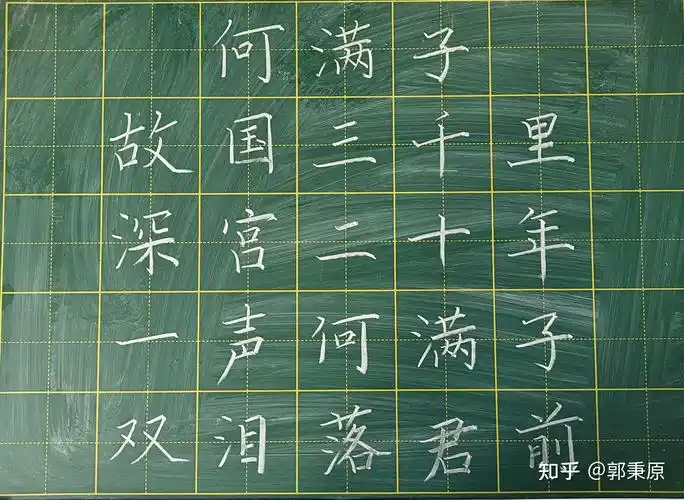 何满子
故国三千里
深宫二十年
一声何满子
双泪落君前
知乎 @郭秉原